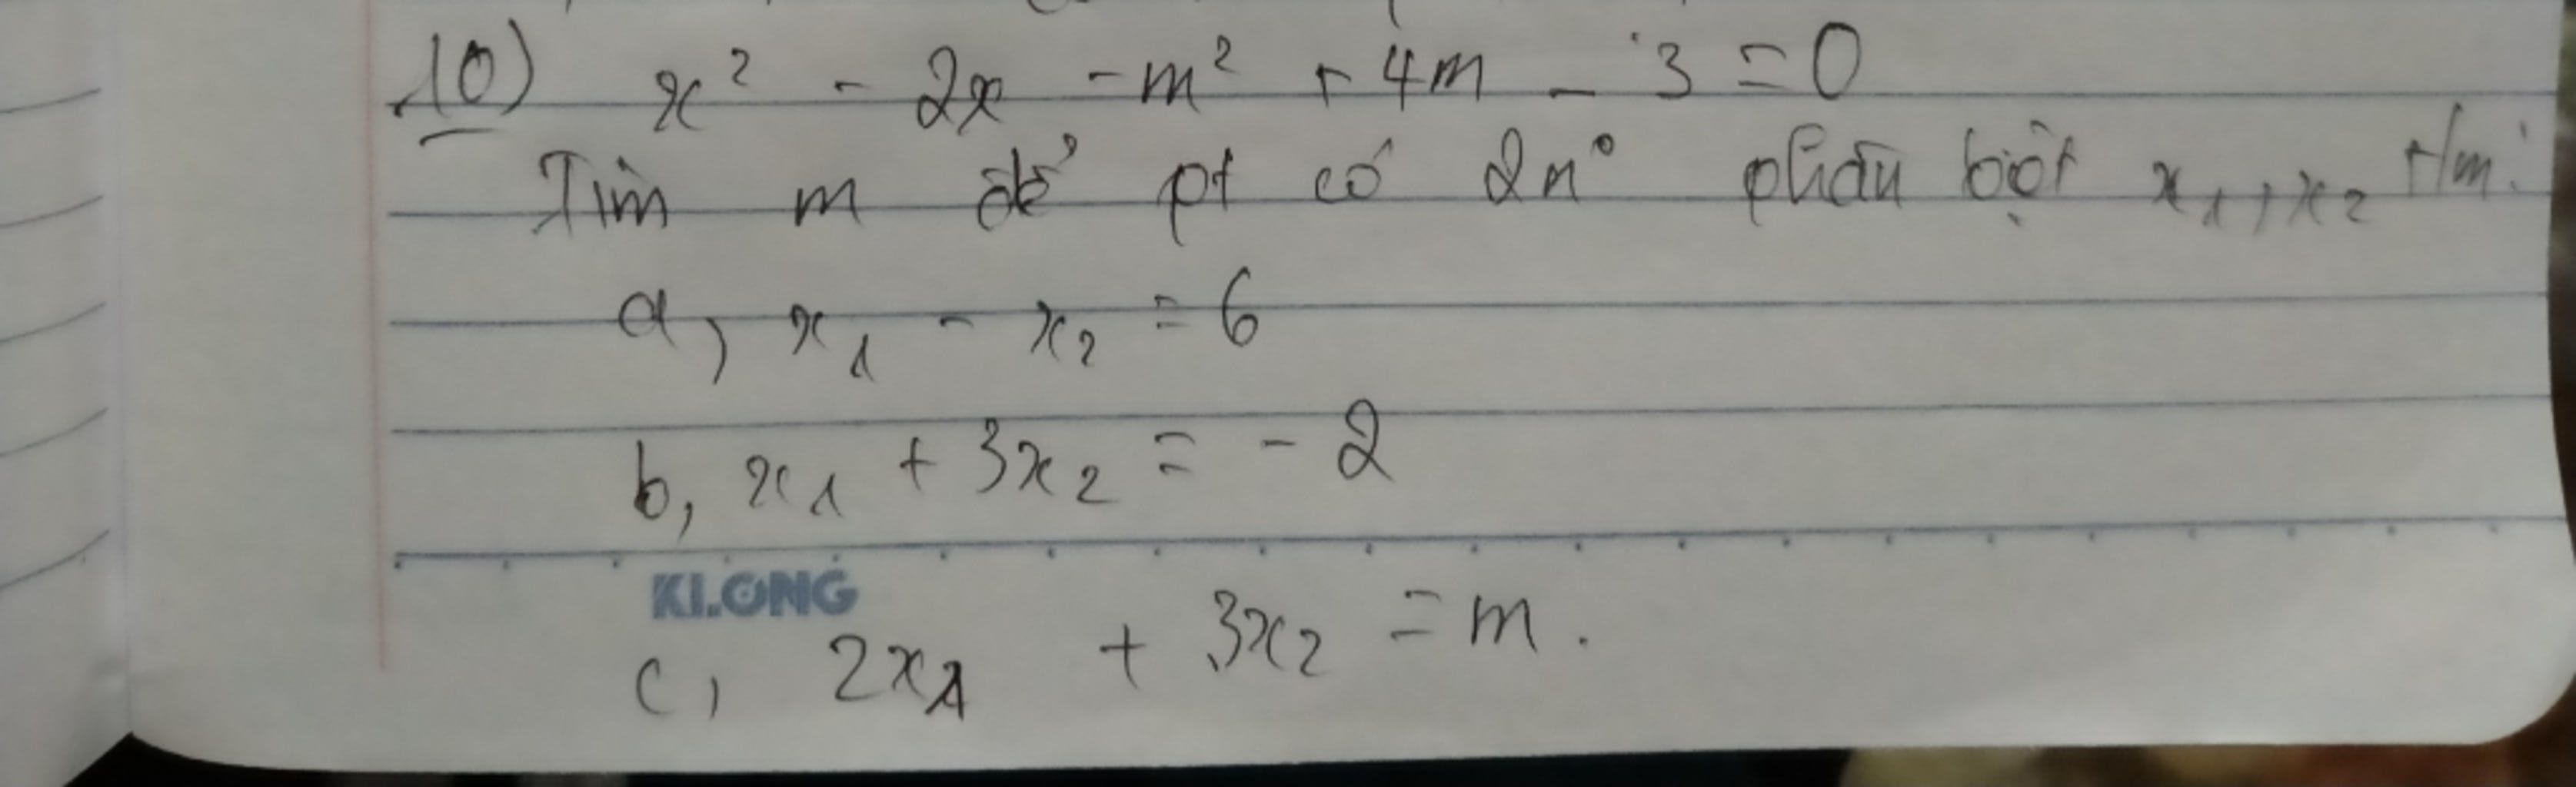 10) x² - 2x - m² + 4m - 3 = 0
Tìm m để pt có 2n° phân biệt x₁, x₂ t/m:
a, x₁ - x₂ = 6
b, x₁ + 3x₂ = -2
KLONG
c, 2x₁ + 3x₂ = m.